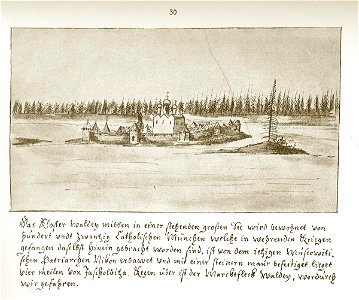 30
Das Kloster Waldey mitten in einer stehenden großen See wird bewohnet von
hundert undt zwantzig Catholischen München welche in wehrenden Kriegen
gefangen daselbst hinein gebracht worden sind, ist von dem itzigen Muscowiti-
schen Patriarchen Nikon erbawet und mit einer steinern maur befestiget lieget
vier meilen von Jascholbitza. Gegen über ist der Marckefleck Waldey, wordurch
wir gefahren.